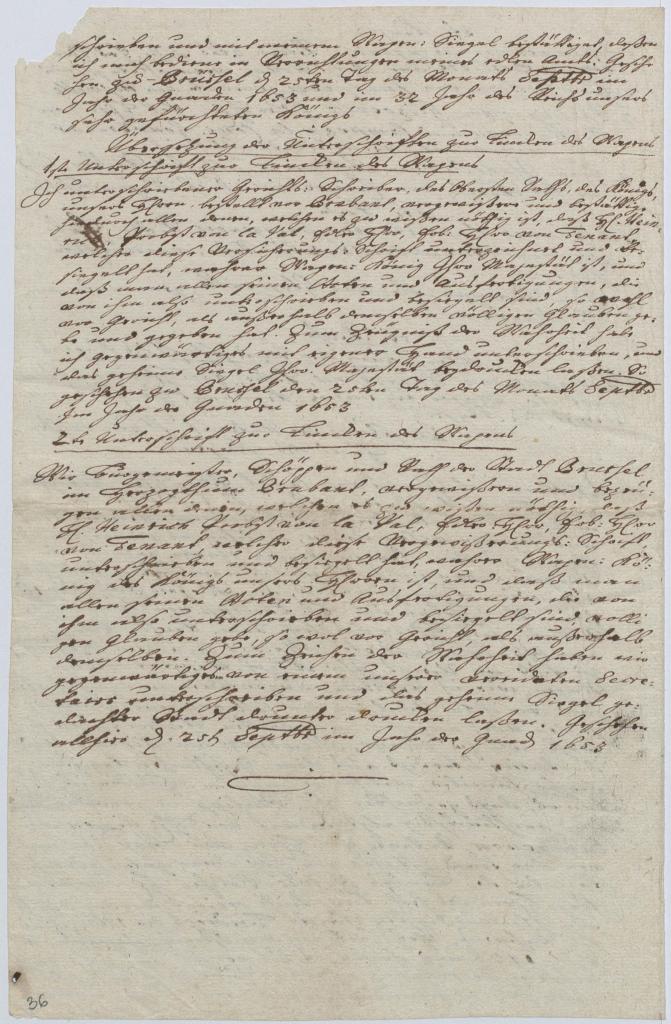 schrieben und mit meinem Wapen: Siegel bestättiget, deßen
ich mich bediene in Verrichtungen meines edlen Amts. Gesche
hen zu Brüssel d 25ten Tag des Monats Septbr im
Jahr der Gnaden 1653 und im 32 Jahr des Reichs unsers
sehr gefürchteten Königs
Übersetzung der Unterschriften zur Linken des Wapens
1ste Unterschrift zur Linken des Wapens
Ich unterschriebener Gerichts: Schreiber, des Obersten des Königs,
unsers Herrn, bestellt vor Brabant, vergewißere und bestättige
hiedurch allen denen, welchen es zu wißen nöthig ist, daß H. Hein
rich Probst von la Val, Herr von Tenant
welcher diese Versicherungs: Schrift unterzeichnet und be
siegelt hat, wahrer Wapen: König Ihro Majestät ist, und
daß man allen seinen Acten und Ausfertigungen, die
von ihm also unterschrieben und besiegelt sind, so wohl
vor Gericht, als außerhalb demselben völligen Glauben ge
be und gegeben hat. Zum Zeugniß der Wahrheit habe
ich gegenwärtiges mit eigener Hand unterschrieben, und
das geheime Siegel Ihro Majestät beydrücken laßen. So
geschehen zu Brussel den 25ten Tag des Monats Septbr
Im Jahr der Gnaden 1653
2te Unterschrift zur Linken des Wapens
Wir Bürgemeister, Schöppen und Rath der Stadt Brussel
im Herzogthum Brabant, vergewißern und bezeu
gen allen denen, welchen es zu wißen nöthig, daß
H. Heinrich Probst von la Val,
von Tenant, welcher diese Vergewißerungs: Schrift
unterschrieben und besiegelt hat, wahrer Wapen: Kö
nig des Königs unsers Herren ist, und daß man
allen seinen Acten und Ausfertigungen, die von
ihm also unterschrieben und besiegelt sind, völli
gen Glauben gebe, so wol vor Gericht, als außerhalb
demselben. Zum Zeichen der Wahrheit haben wir
gegenwärtiges von einem unserer vereideten Secre
tairs unterschreiben und das geheime Siegel ge
dachter Stadt darunter drucken laßen. Geschehen
allhier d. 25t Septbr im Jahr der Gnad 1653
36